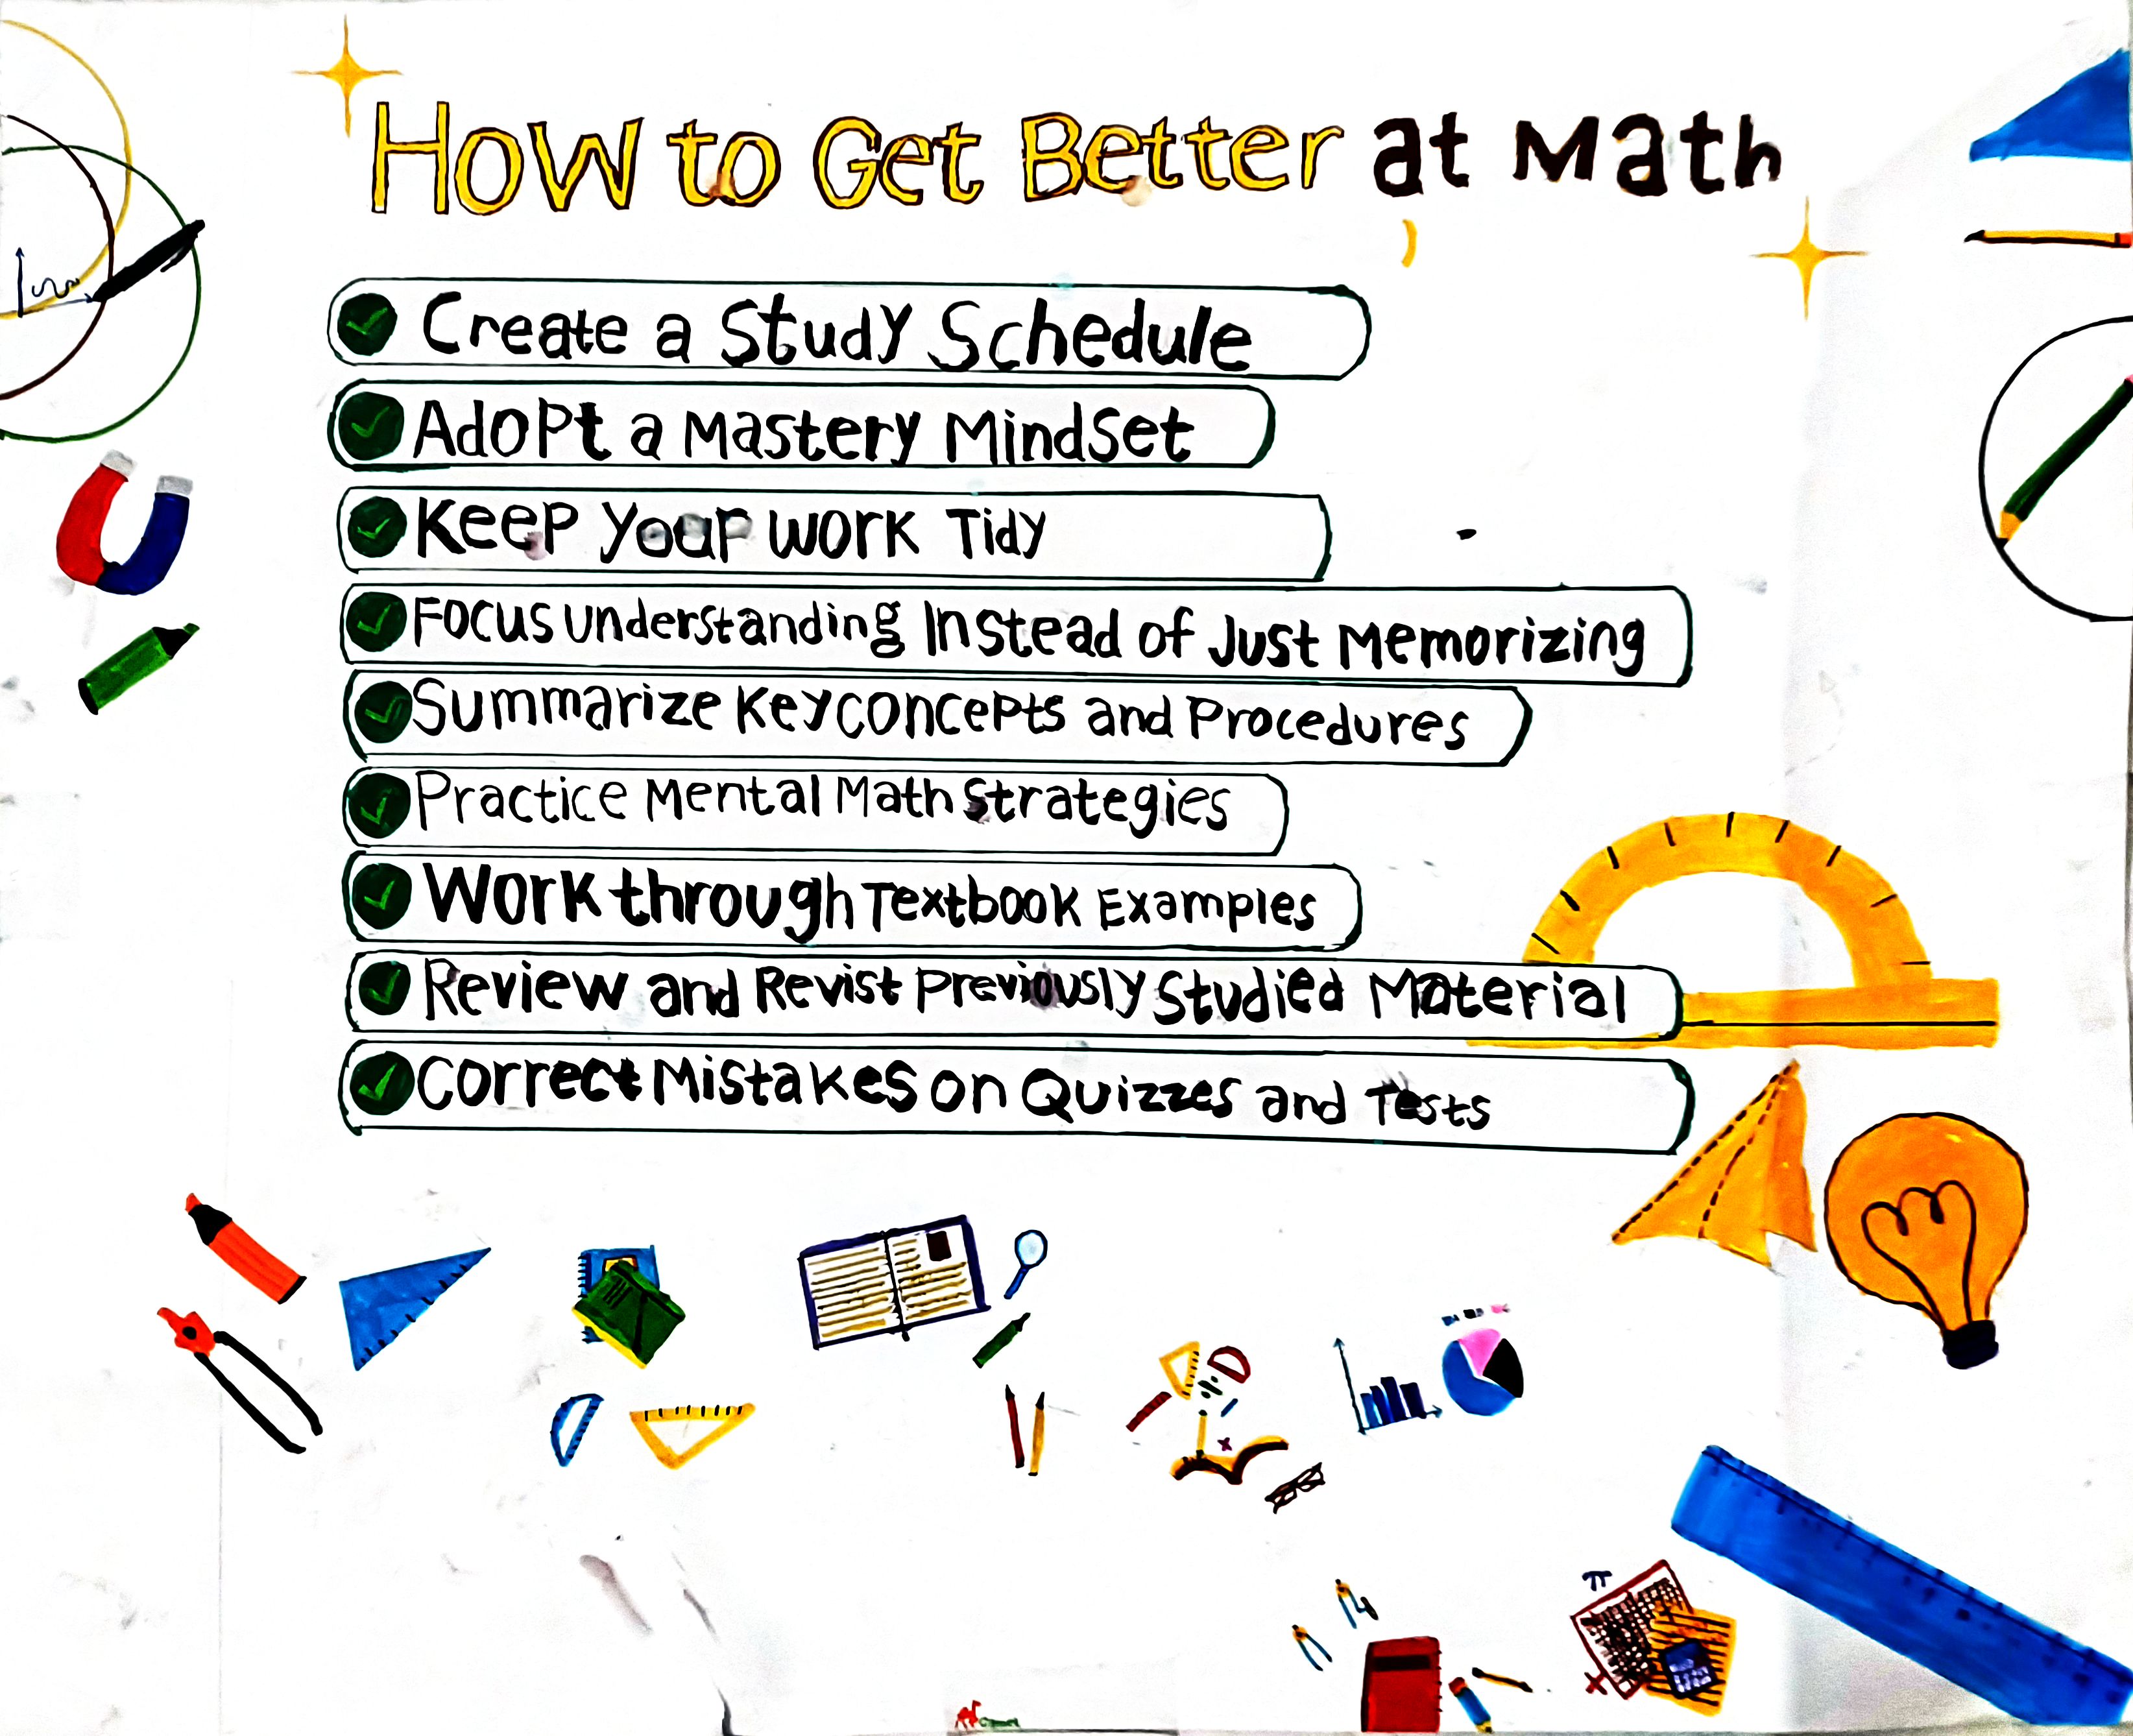 How to Get Better at Math
Create a Study Schedule
Adopt a Mastery Mindset
Keep your work Tidy
Focus Understanding Instead of Just Memorizing
Summarize Key concepts and Procedures
Practice Mental Math Strategies
Work through Textbook Examples
Review and Revist Previously Studied Material
Correct Mistakes on Quizzes and Tests
π